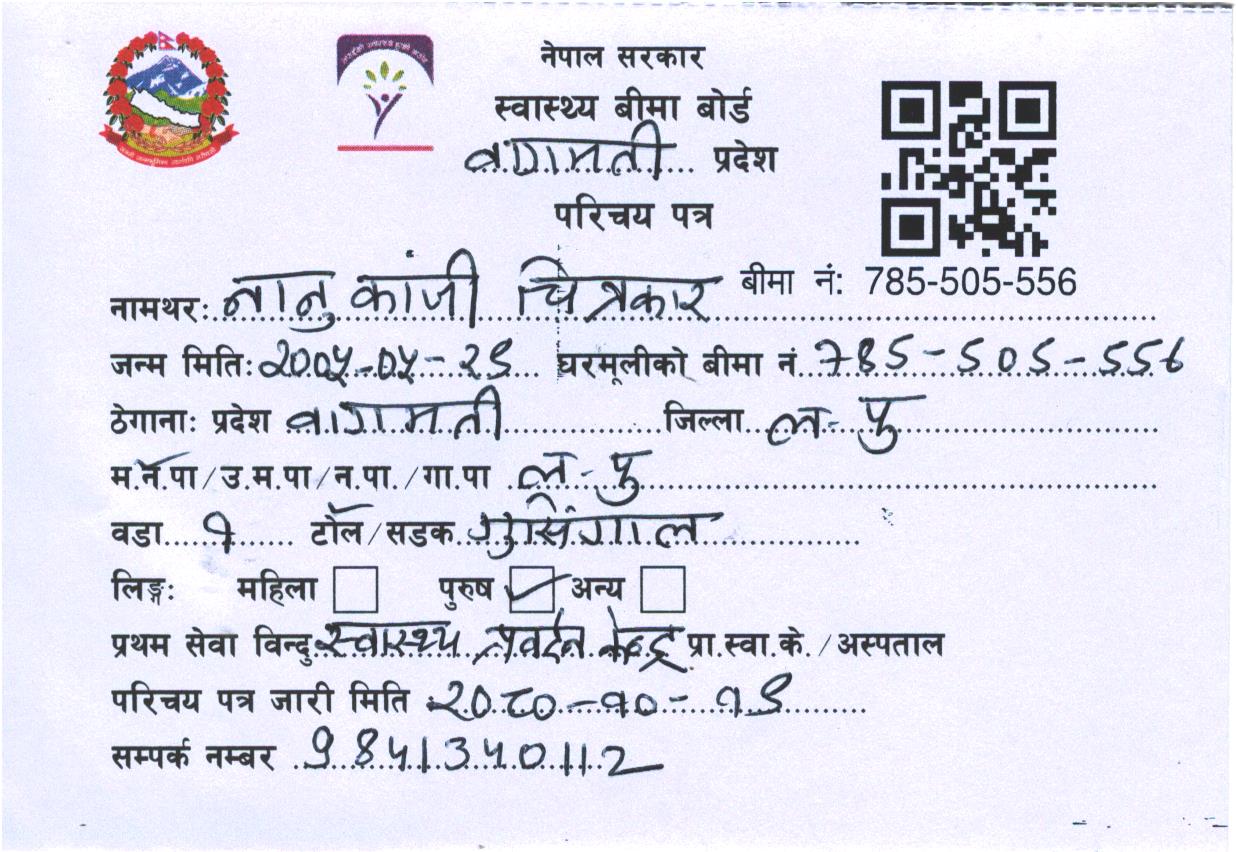 नेपाल सरकार
स्वास्थ्य बीमा बोर्ड
वागमती प्रदेश
परिचय पत्र
नामथर: नानु कांजी चित्रकार बीमा नं: 785-505-556
जन्म मिति: घरमूलीको बीमा नं. 785-505-556
ठेगाना: प्रदेश वागमती जिल्ला ल.पु
म.न.पा/उ.म.पा/न.पा./गा.पा ल.पु
वडा १ टोल/सडक गुसिंगाल
लिङ्ग: महिला पुरुष अन्य
प्रथम सेवा विन्दु स्वास्थ्य प्रवर्द्धन केन्द्र प्रा.स्वा.के./अस्पताल
परिचय पत्र जारी मिति २०८०-१०-१९
सम्पर्क नम्बर 9841340112